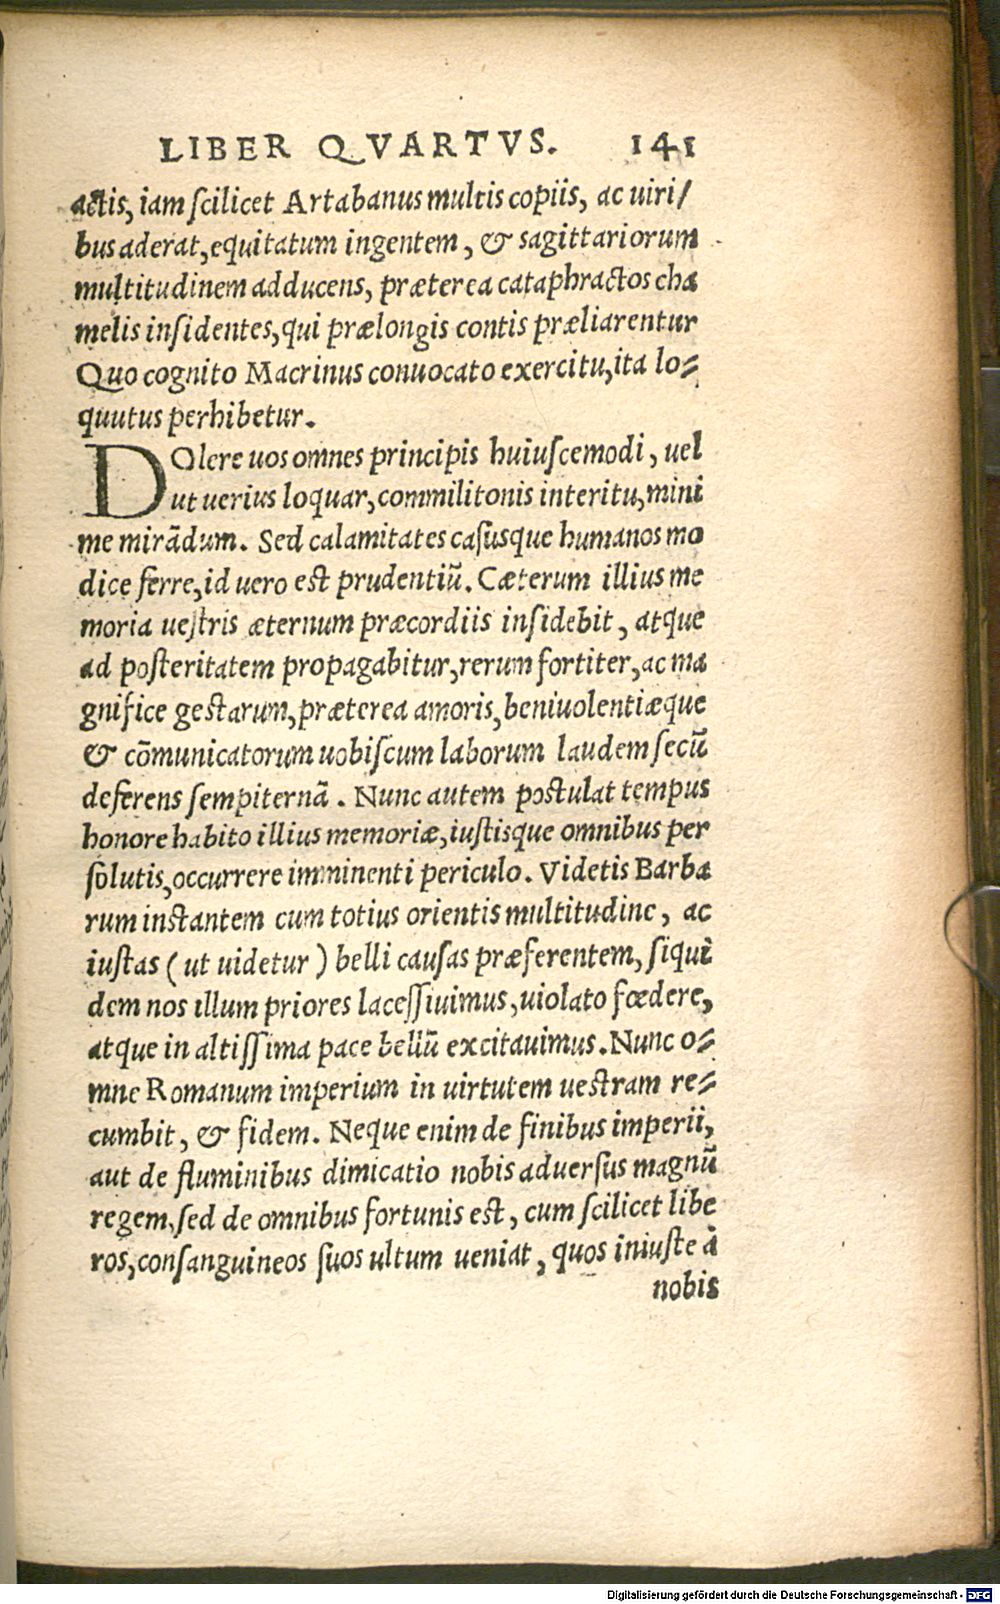 LIBER QVARTVS. 141
actis, iam scilicet Artabanus multis copiis, ac uiri/
bus aderat, equitatum ingentem, & sagittariorum
multitudinem adducens, præterea cataphractos cha
melis insidentes, qui prælongis contis præliarentur
Quo cognito Macrinus conuocato exercitu, ita lo-
quutus perhibetur.
DOlere uos omnes principis huiuscemodi, uel
ut uerius loquar, commilitonis interitu, mini
me mirãdum. Sed calamitates casusque humanos mo
dice ferre, id uero est prudentiũ. Cæterum illius me
moria uestris æternum præcordiis insidebit, atque
ad posteritatem propagabitur, rerum fortiter, ac ma
gnifice gestarum, præterea amoris, beniuolentiæque
& cõmunicatorum uobiscum laborum laudem secũ
deferens sempiternã. Nunc autem postulat tempus
honore habito illius memoriæ, iustisque omnibus per
solutis, occurrere imminenti periculo. Videtis Barba
rum instantem cum totius orientis multitudine, ac
iustas (ut uidetur) belli causas præferentem, siqui
dem nos illum priores lacessiuimus, uiolato fœdere,
atque in altissima pace bellũ excitauimus. Nunc o-
mne Romanum imperium in uirtutem uestram re-
cumbit, & fidem. Neque enim de finibus imperii,
aut de fluminibus dimicatio nobis aduersus magnũ
regem, sed de omnibus fortunis est, cum scilicet libe
ros, consanguineos suos ultum ueniat, quos iniuste à
nobis
Digitalisierung gefördert durch die Deutsche Forschungsgemeinschaft - DFG